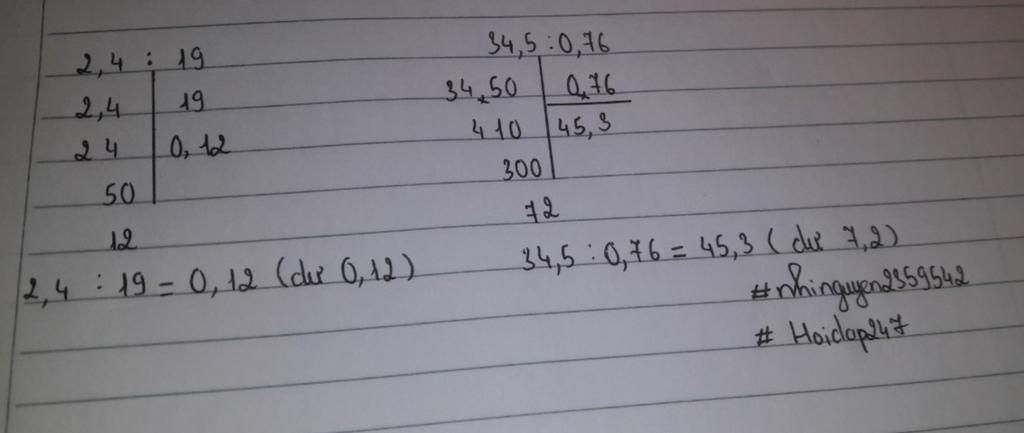 2,4 : 19
2,4 19
24 0,12
50
12
2,4 : 19 = 0,12 (dư 0,12)
34,5 : 0,76
34,50 0,76
410 45,3
300
72
34,5 : 0,76 = 45,3 (dư 7,2)
#nhinguyen2359542
# Hoidap247